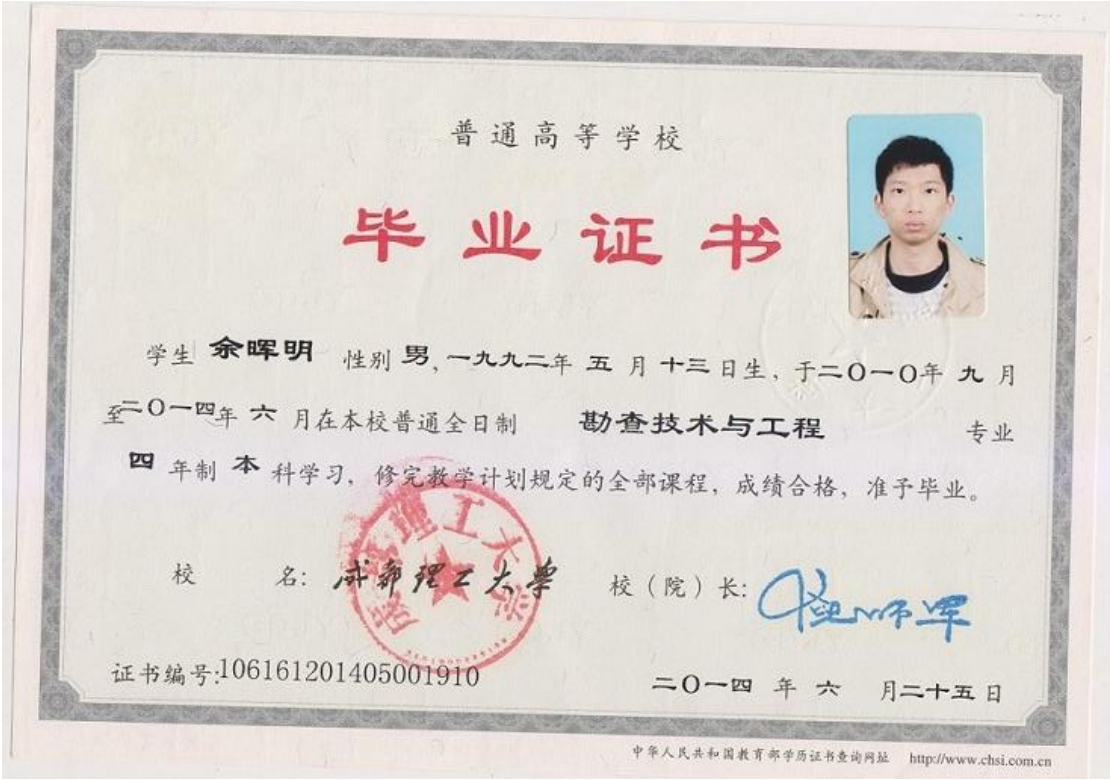 普通高等学校
毕业证书
学生 余晖明 性别 男，一九九二年 五 月 十三日生，于二〇一〇年 九 月
至二〇一四年 六 月在本校普通全日制 勘查技术与工程 专业
四 年制 本 科学习，修完教学计划规定的全部课程，成绩合格，准予毕业。
校 名：成都理工大学 校（院）长：
成都理工大学
证书编号:106161201405001910 二〇一四 年 六 月二十五日
中华人民共和国教育部学历证书查询网址 http://www.chsi.com.cn